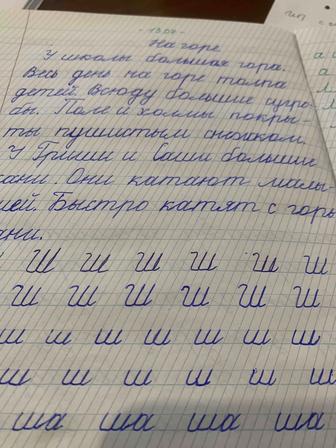 13.07
На горе
У школы большая гора.
Весь день на горе толпа
детей. Всюду большие сугро-
бы. Поле и холмы покры-
ты пушистым снежком.
У Гриши и Саши большие
сани. Они катают малы-
шей. Быстро катят с горы
сани.
Ш Ш Ш Ш Ш Ш
Ш Ш Ш Ш Ш Ш Ш
ш ш ш ш ш ш ш
ш ш ш ш ш ш
ша ша ша ша